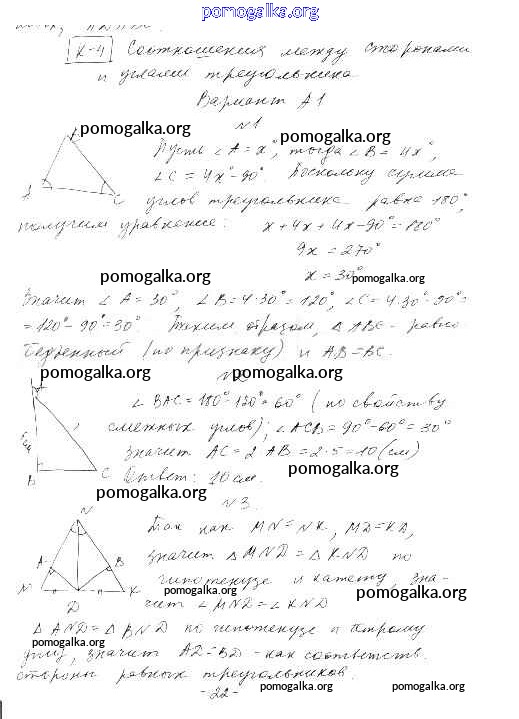 pomogalka.org
К-4 Соотношения между сторонами
и углами треугольника
Вариант А1
№1
pomogalka.org
pomogalka.org
Пусть ∠A = x°, тогда ∠B = 4x°,
∠C = 4x° - 90°. Поскольку сумма
углов треугольника равна 180°,
получим уравнение: x + 4x + 4x - 90° = 180°
9x = 270°
x = 30°
pomogalka.org
pomogalka.org
Значит ∠A = 30°, ∠B = 4·30° = 120°, ∠C = 4·30° - 90° =
= 120° - 90° = 30°. Таким образом, △ABC - равно-
бедренный (по признаку) и AB = BC.
pomogalka.org
pomogalka.org
∠BAC = 180° - 120° = 60° (по свойству
смежных углов); ∠ACB = 90° - 60° = 30°
значит AC = 2 AB = 2·5 = 10 (см)
B C Ответ: 10 см.
pomogalka.org
pomogalka.org
№3
N
Так как MN = NK, MD = KD,
A B значит △MND = △KND по
гипотенузе и катету, зна-
M D K чит ∠MND = ∠KND
pomogalka.org
pomogalka.org
△AND = △BND по гипотенузе и острому
pomogalka.org
углу, значит AD = BD - как соответств.
стороны равных треугольников.
-22-
pomogalka.org
pomogalka.org